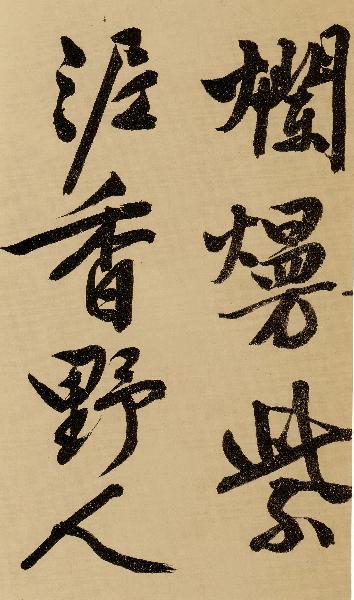 爛熳紫
泥香野人